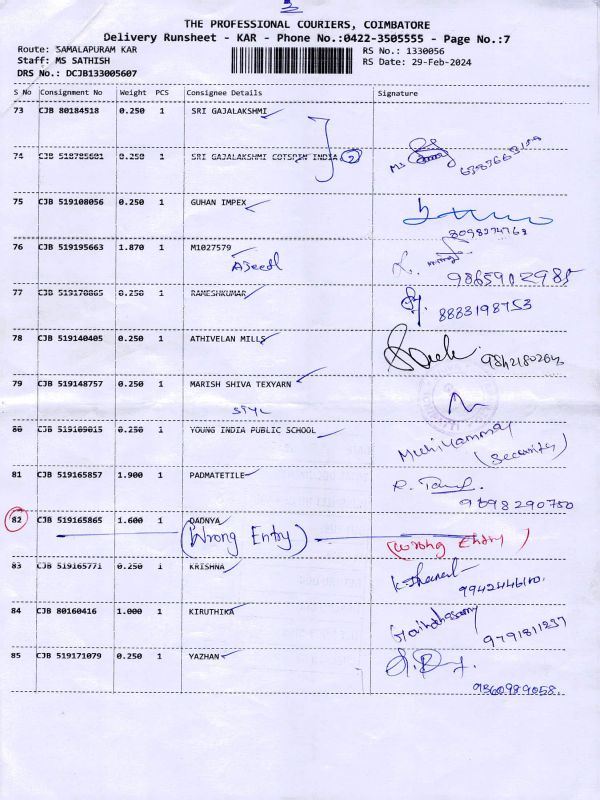 3
THE PROFESSIONAL COURIERS, COIMBATORE
Delivery Runsheet - KAR - Phone No.:0422-3505555 - Page No.:7
Route: SAMALAPURAM KAR
RS No.: 1330056
Staff: MS SATHISH
RS Date: 29-Feb-2024
DRS No.: DCJB133005607
S No Consignment No Weight PCS Consignee Details Signature
73 CJB 80184518 0.250 1 SRI GAJALAKSHMI
74 CJB 518785601 0.250 1 SRI GAJALAKSHMI COTSPIN INDIA 2
75 CJB 519108056 0.250 1 GUHAN IMPEX
8098274763
76 CJB 519195663 1.870 1 M1027579
9865902985
77 CJB 519170865 0.250 1 RAMESHKUMAR
8883198753
78 CJB 519140405 0.250 1 ATHIVELAN MILLS
9842180263
79 CJB 519148757 0.250 1 MARISH SHIVA TEXYARN
80 CJB 519109015 0.250 1 YOUNG INDIA PUBLIC SCHOOL
(Security)
81 CJB 519165857 1.900 1 PADMATETILE
9698290750
82 CJB 519165865 1.600 1 DADNYA
(Wrong Entry) (Wrong Entry)
83 CJB 519165771 0.250 1 KRISHNA
84 CJB 80160416 1.000 1 KIRUTHIKA
9791811237
85 CJB 519171079 0.250 1 YAZHAN
9360989058.